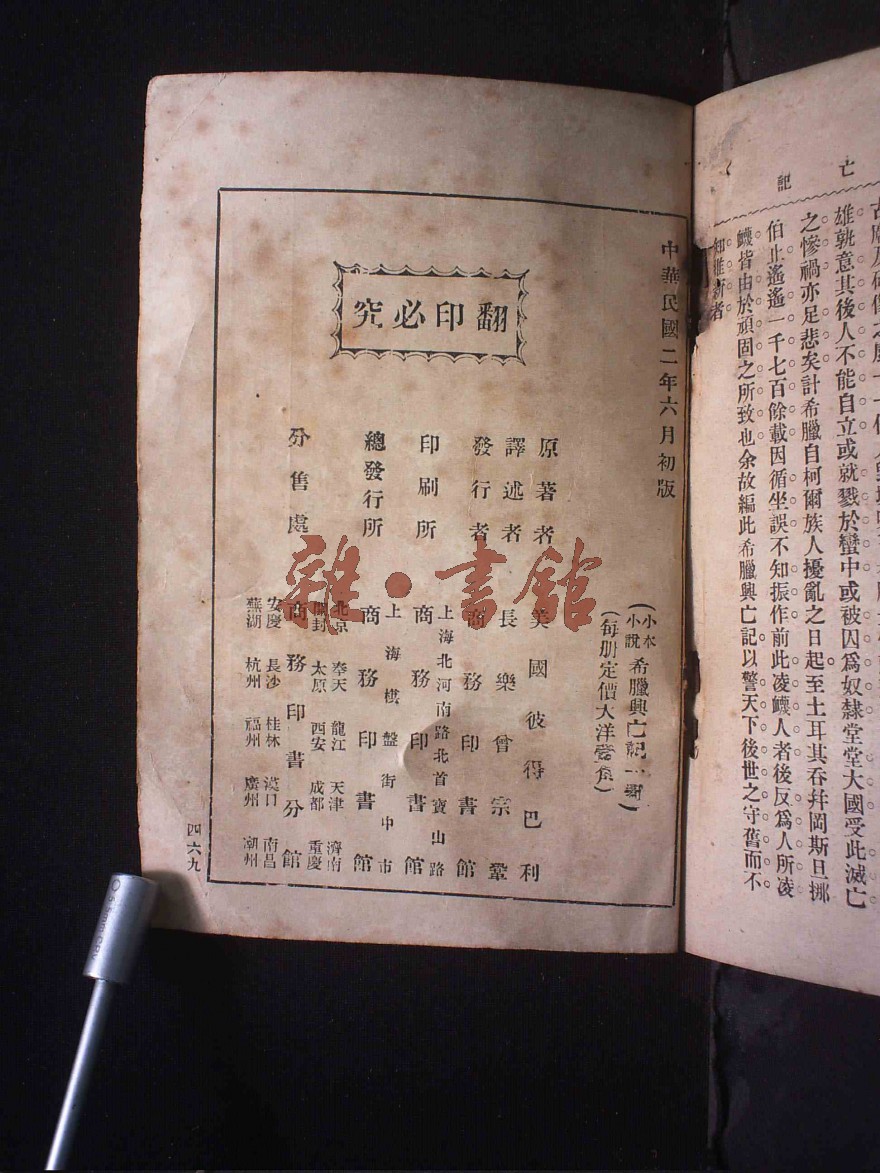 亡
記
雄孰意其後人不能自立或就戮於蠻中或被囚爲奴隸堂堂大國受此滅亡
之慘禍亦足悲矣計希臘自柯爾族人擾亂之日起至土耳其吞幷岡斯旦挪
伯止遙遙一千七百餘載因循坐誤不知振作前此凌轢人者後反爲人所凌
轢皆由於頑固之所致也余故編此希臘興亡記以警天下後世之守舊而不
知維新者
中華民國二年六月初版
翻印必究
(小本小說希臘興亡記一冊)
(每册定價大洋壹角)
原著者 美國彼得巴利
譯述者 長樂曾宗鞏
發行者 商務印書館
印刷所 上海北河南路北首寶山路 商務印書館
總發行所 上海棋盤街中市 商務印書館
分售處 北京 奉天 龍江 天津 濟南
開封 太原 西安 成都 重慶
商務印書分館
安慶 長沙 桂林 漢口 南昌
蕪湖 杭州 福州 廣州 潮州
四六九
雜·書館